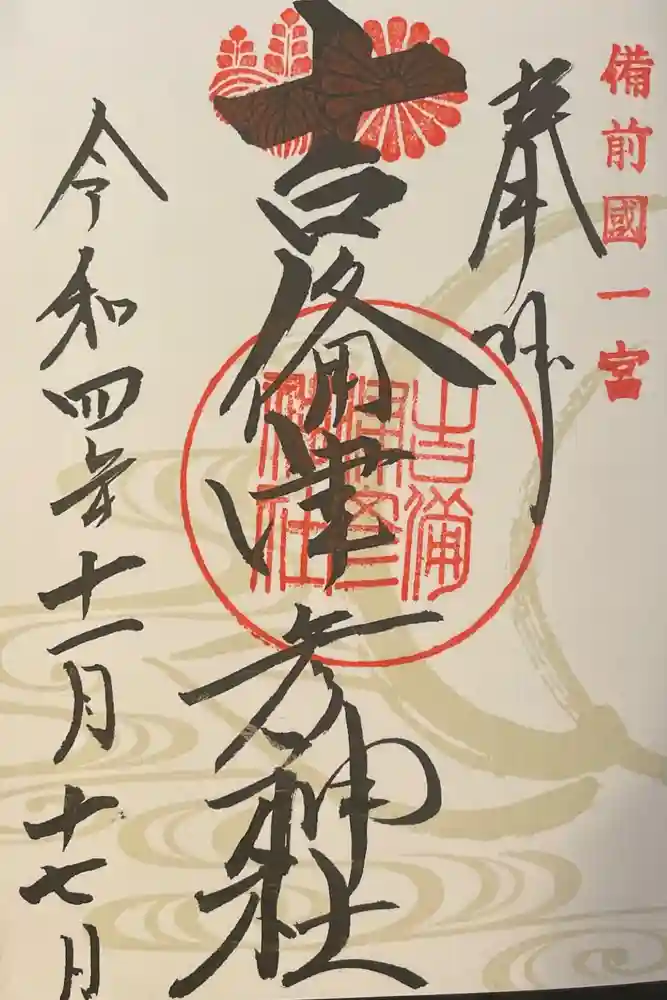 備前國一宮
奉拝
吉備津彦神社
吉備
津彦
神社
令和四年十一月十七日